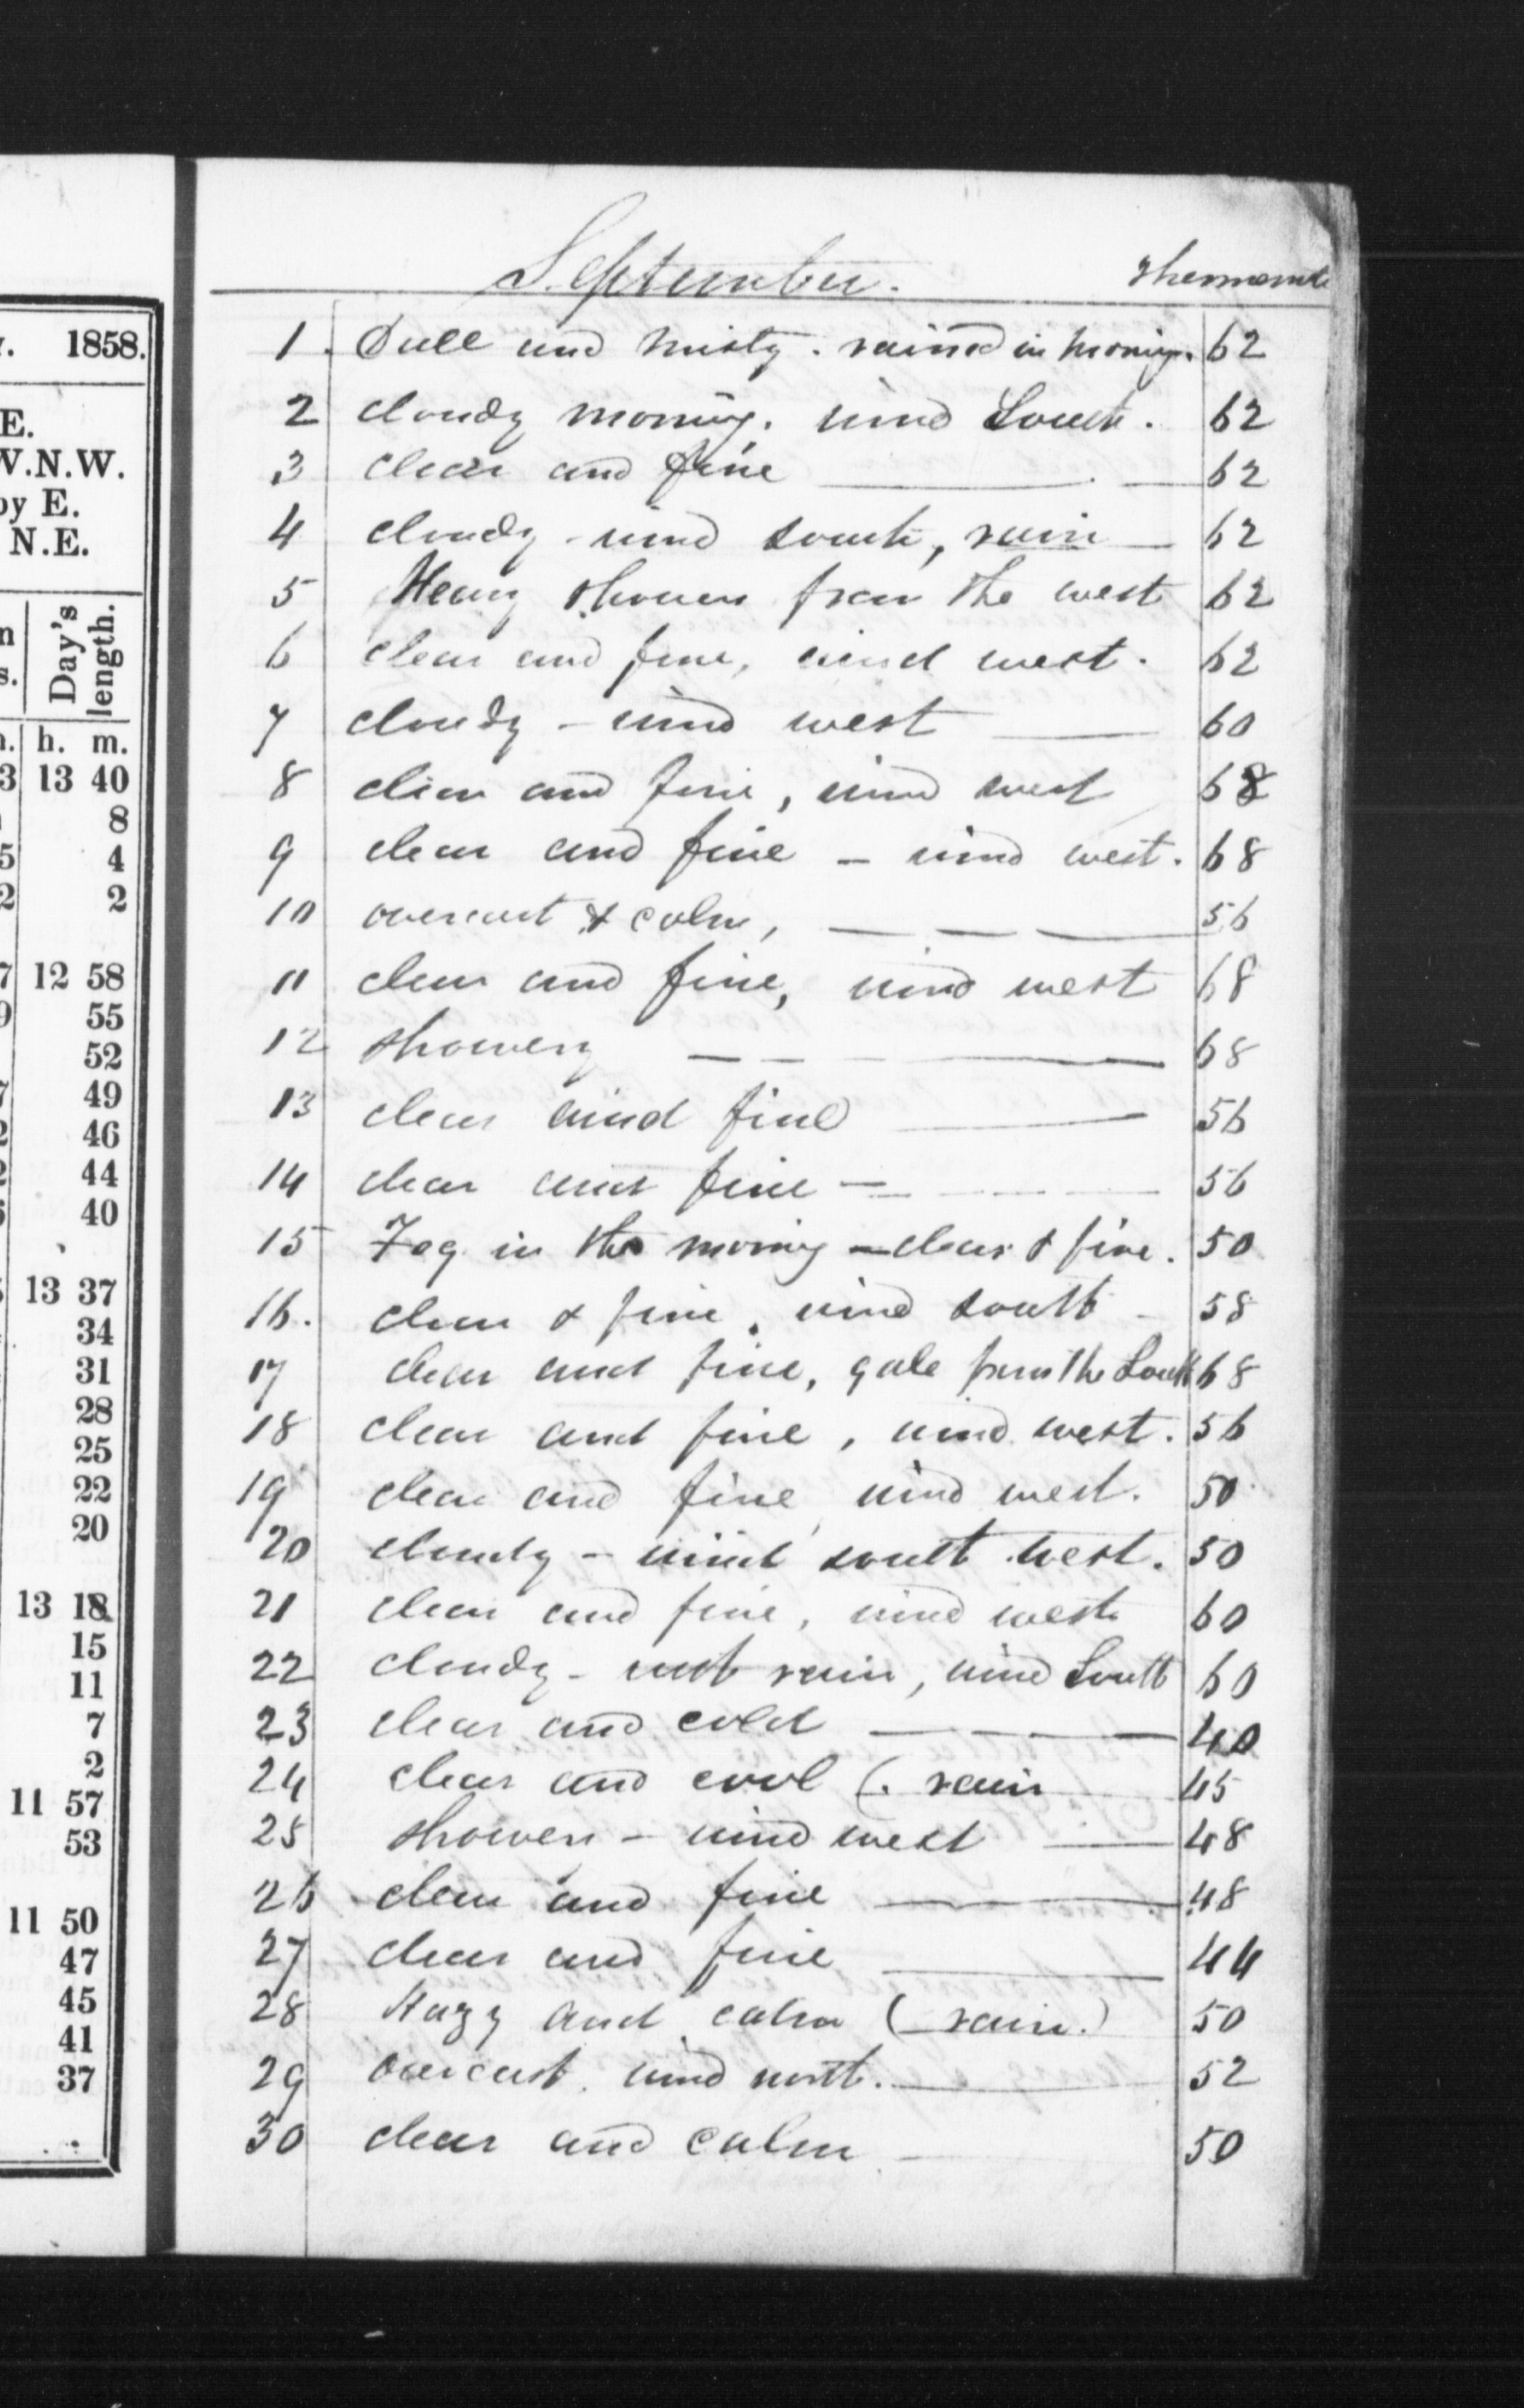 7. 1858.
E.
W.N.W.
by E.
N.E.
n
s.
Day's
length.
h. m.
3 13 40
8
5 4
2 2
7 12 58
9 55
52
7 49
2 46
2 44
6 40
13 37
34
31
28
25
22
20
13 18
15
11
7
2
11 57
53
11 50
47
45
41
37
September. Thermomtr
1. Dull and misty. rained in morning. 62
2 cloudy morning. wind South. 62
3 clear and fine 62
4 cloudy - wind south, rain 62
5 Heavy showers from the west 62
6 clear and fine, wind west. 62
7 cloudy - wind west 60
8 clear and fine, wind west 68
9 clear and fine - wind west. 68
10 overcast & calm, 56
11 clear and fine, wind west 68
12 showery 68
13 clear and fine 56
14 clear and fine 56
15 Fog in the morning - clear & fine. 50
16. clear & fine, wind south 58
17 clear and fine, gale from the South 68
18 clear and fine, wind west. 56
19 clear and fine, wind west. 50
20 cloudy - wind south west. 50
21 clear and fine, wind west 60
22 cloudy - wet rain, wind South 60
23 clear and cold 40
24 clear and cool (. rain 45
25 showers - wind west 48
26 clear and fine 48
27 clear and fine 44
28 Hazy and calm (rain.) 50
29 overcast. wind north. 52
30 clear and calm 50